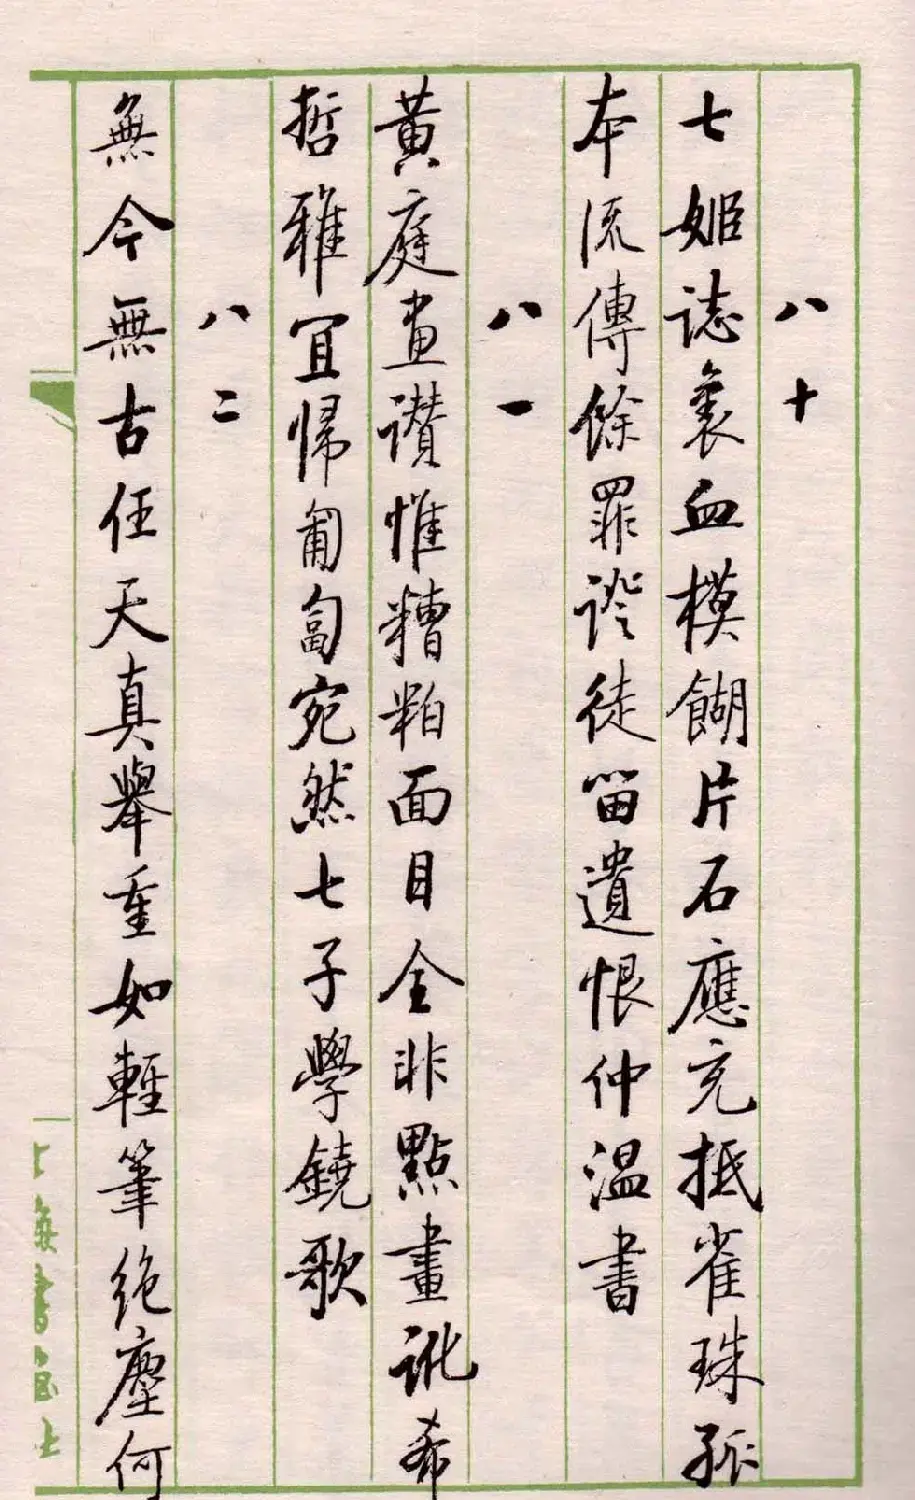 八十
七姬誌裏血模餬片石應充抵雀珠孤
本流傳餘罪證徒留遺恨仲溫書
八一
黃庭畫讚惟糟粕面目全非點畫訛希
哲雅宜歸匍匐宛然七子學鐃歌
八二
無今無古任天真舉重如輕筆絶塵何
上海書画社